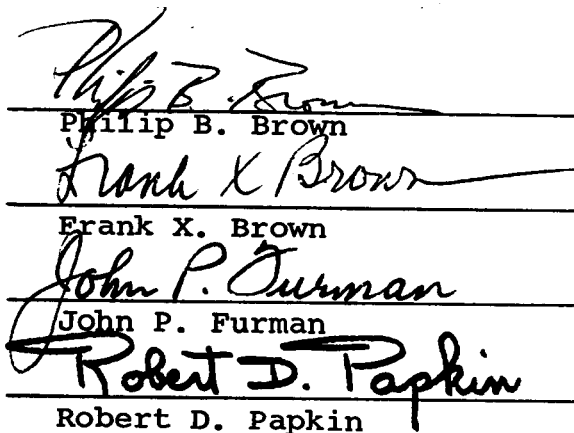 Philip B. Brown
Philip B. Brown
Frank X Brown
Frank X. Brown
John P. Furman
John P. Furman
Robert D. Papkin
Robert D. Papkin